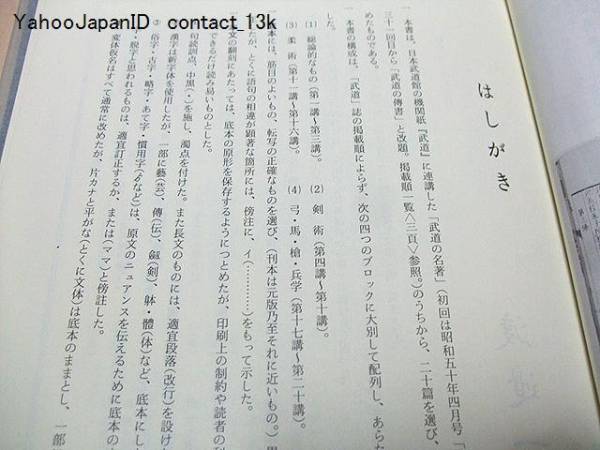 YahooJapanID contact_13k
はしがき
一 本書は、日本武道館の機関紙『武道』に連講した「武道の名著」（初回は昭和五十年四月号「
三十一回目から「武道の傳書」と改題。掲載順一覧〈三頁〉参照。）のうちから、二十篇を選び、
めたものである。
一 本書の構成は、「武道」誌の掲載順によらず、次の四つのブロックに大別して配列し、あらた
した。
(1) 総論的なもの（第一講〜第三講）。 (2) 剣術（第四講〜第十講）。
(3) 柔術（第十一講〜第十六講）。 (4) 弓・馬・槍・兵学（第十七講〜第二十講）。
本には、筋目のよいもの、転写の正確なものを選び、（刊本は元版乃至それに近いもの。）
たが、とくに語句の相違が顕著な箇所には、傍注に、イ（………）をもって示した。
文の翻刻にあたっては、底本の原形を保存するようにつとめたが、印刷上の制約や読者の利
できるだけ読み易いものとした。
句読訓点、中黒（・）を施し、濁点を付けた。また長文のものには、適宜段落（改行）を設け
漢字は新字体を使用したが、一部に藝（芸）、傳（伝）、劔（剣）、躰・體（体）など、底本にし
② 俗字・古字・略字・あて字・慣用字（〆など）は、原文のニュアンスを伝えるために底本の
・脱字と思われるものは、適宜訂正するか、または（ママ）と傍注した。
変体仮名はすべて通常に改めたが、片カナと平がな（とくに文体）は底本のままとし、一部